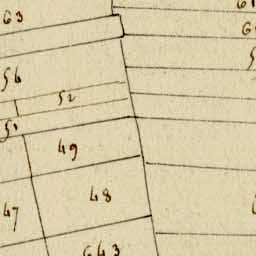 63
56
52
51
49
48
47
643